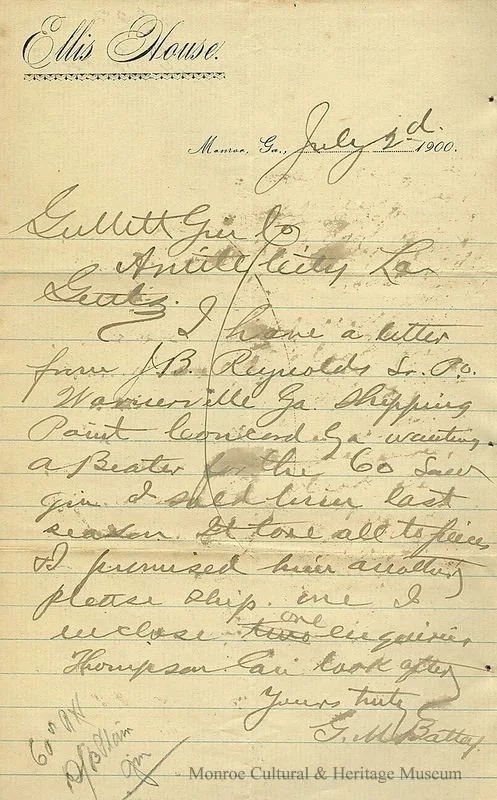 Ellis House.
Monroe, Ga., July 2d. 1900.
Gullett Gin Co
Amite City La.
Gentz.
I have a letter
from J.B. Reynolds Sr. Po.
Warnerville Ga. Shipping
Point Concord Ga wanting
a Beater for the 60 saw
gin I sold him last
season. It tore all to pieces
& I promised him another
please ship one I
enclose one enquiries
Thompson can look after
Yours truly
G. M. Battey
60
gin
Monroe Cultural & Heritage Museum